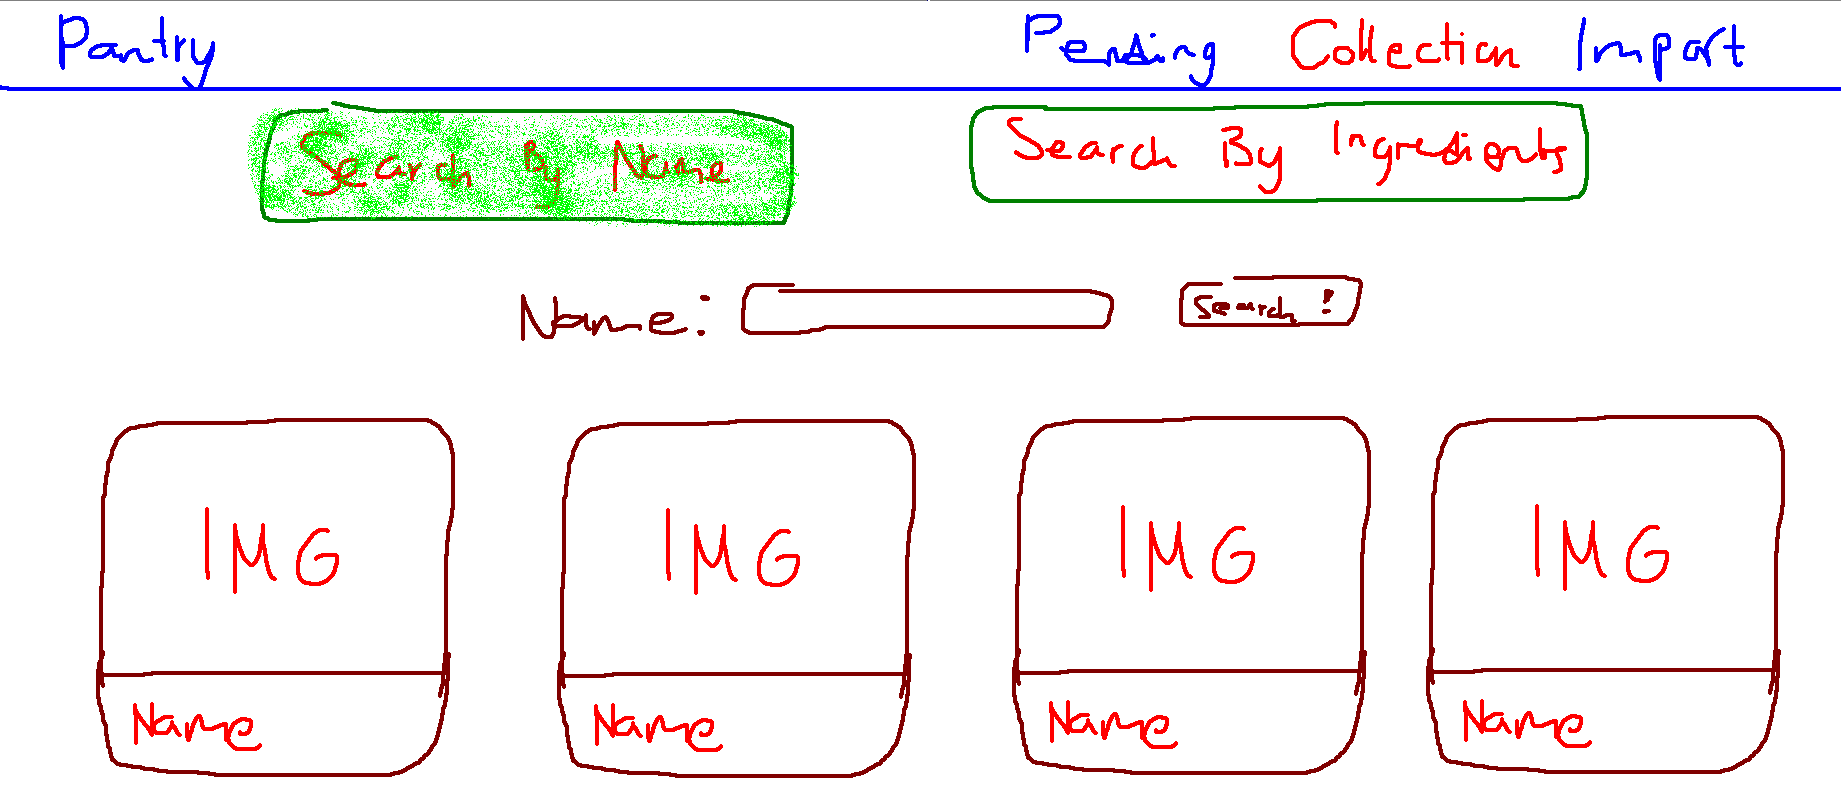 Pantry Pending Collection Import
Search By Name Search By Ingredients
Name: Search!
IMG IMG IMG IMG
Name Name Name Name